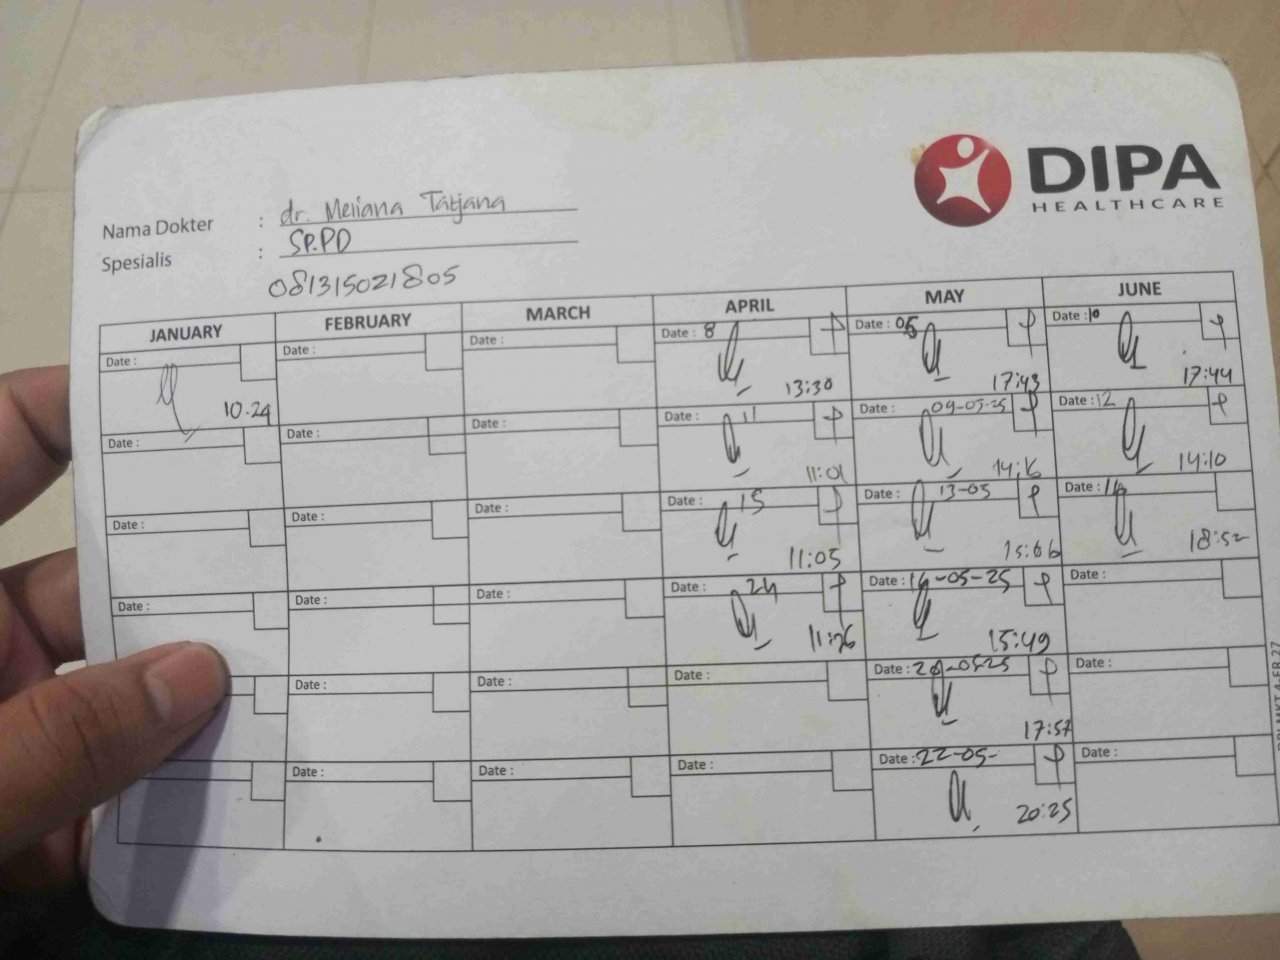 DIPA
HEALTHCARE
Nama Dokter : dr. Meliana Tatjana
Spesialis : SP.PD
081315021805
JANUARY FEBRUARY MARCH APRIL MAY JUNE
Date : Date : Date : Date : 8 Date : 06 Date : 10
10.24 13:30 17:43 17:44
Date : Date : Date : Date : 11 Date : 09-05-25 Date : 12
11:01 14:16 14:10
Date : Date : Date : Date : 15 Date : 13-05 Date :
11:05 15:06 18:52
Date : Date : Date : Date : 24 Date : 16-05-25 Date :
11:26 15:49
Date : Date : Date : Date : 20-05-25 Date :
17:57
Date : Date : Date : Date : 22-05- Date :
20:25